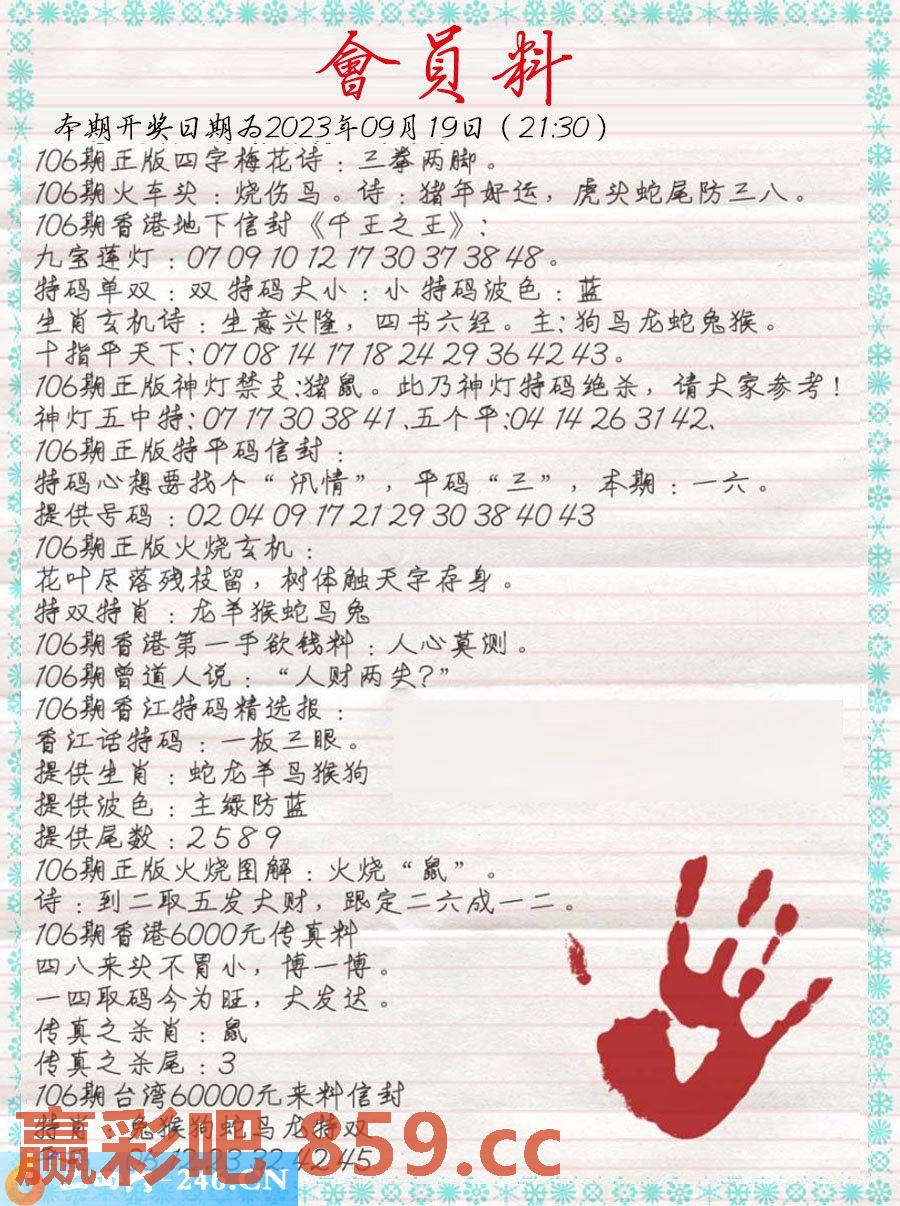 會員料
本期开奖日期为2023年09月19日（21:30）
106期正版四字梅花诗：三拳两脚。
106期火车头：烧伤鸟。诗：猪年好运，虎头蛇尾防三八。
106期香港地下信封《千王之王》：
九宝莲灯：07 09 10 12 17 30 37 38 48。
特码单双：双 特码大小：小 特码波色：蓝
生肖玄机诗：生意兴隆，四书六经。主：狗马龙蛇兔猴。
十指平天下：07 08 14 17 18 24 29 36 42 43。
106期正版神灯禁支:猪鼠。此乃神灯特码绝杀，请大家参考！
神灯五中特：07 17 30 38 41、五个平:04 14 26 31 42、
106期正版特平码信封：
特码心想要找个“汛情”，平码“三”，本期：一六。
提供号码：02 04 09 17 21 29 30 38 40 43
106期正版火烧玄机：
花叶尽落残枝留，树体触天字存身。
特双特肖：龙羊猴蛇马兔
106期香港第一手欲钱料：人心莫测。
106期曾道人说：“人财两失？”
106期香江特码精选报：
香江话特码：一板三眼。
提供生肖：蛇龙羊马猴狗
提供波色：主绿防蓝
提供尾数：2 5 8 9
106期正版火烧图解：火烧“鼠”。
诗：到二取五发大财，跟定二六成一二。
106期香港6000元传真料
四八来头不冒小，博一博。
一四取码今为旺，大发达。
传真之杀肖：鼠
传真之杀尾：3
106期台湾60000元来料信封
特肖：兔猴狗蛇马龙特双
12 23 32 42 45
赢彩吧 859.cc
246.CN